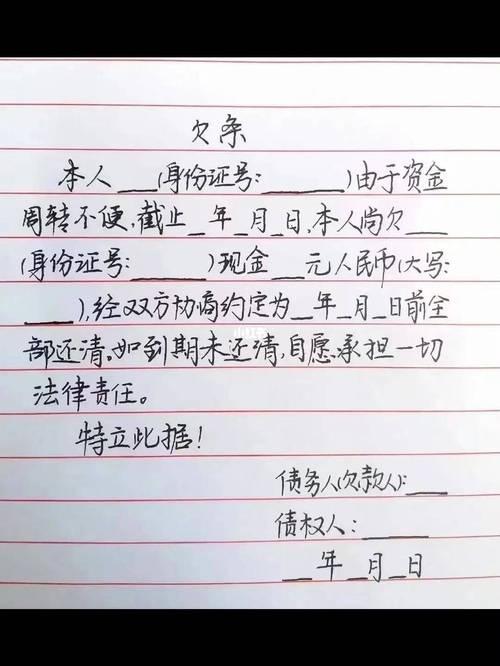 欠条
本人___(身份证号:______)由于资金
周转不便,截止_年_月_日,本人尚欠___
(身份证号:______)现金___元人民币(大写:
____),经双方协商约定为__年_月_日前全
部还清。如到期未还清,自愿承担一切
法律责任。
特立此据!
债务人(欠款人):___
债权人:_____
__年_月_日